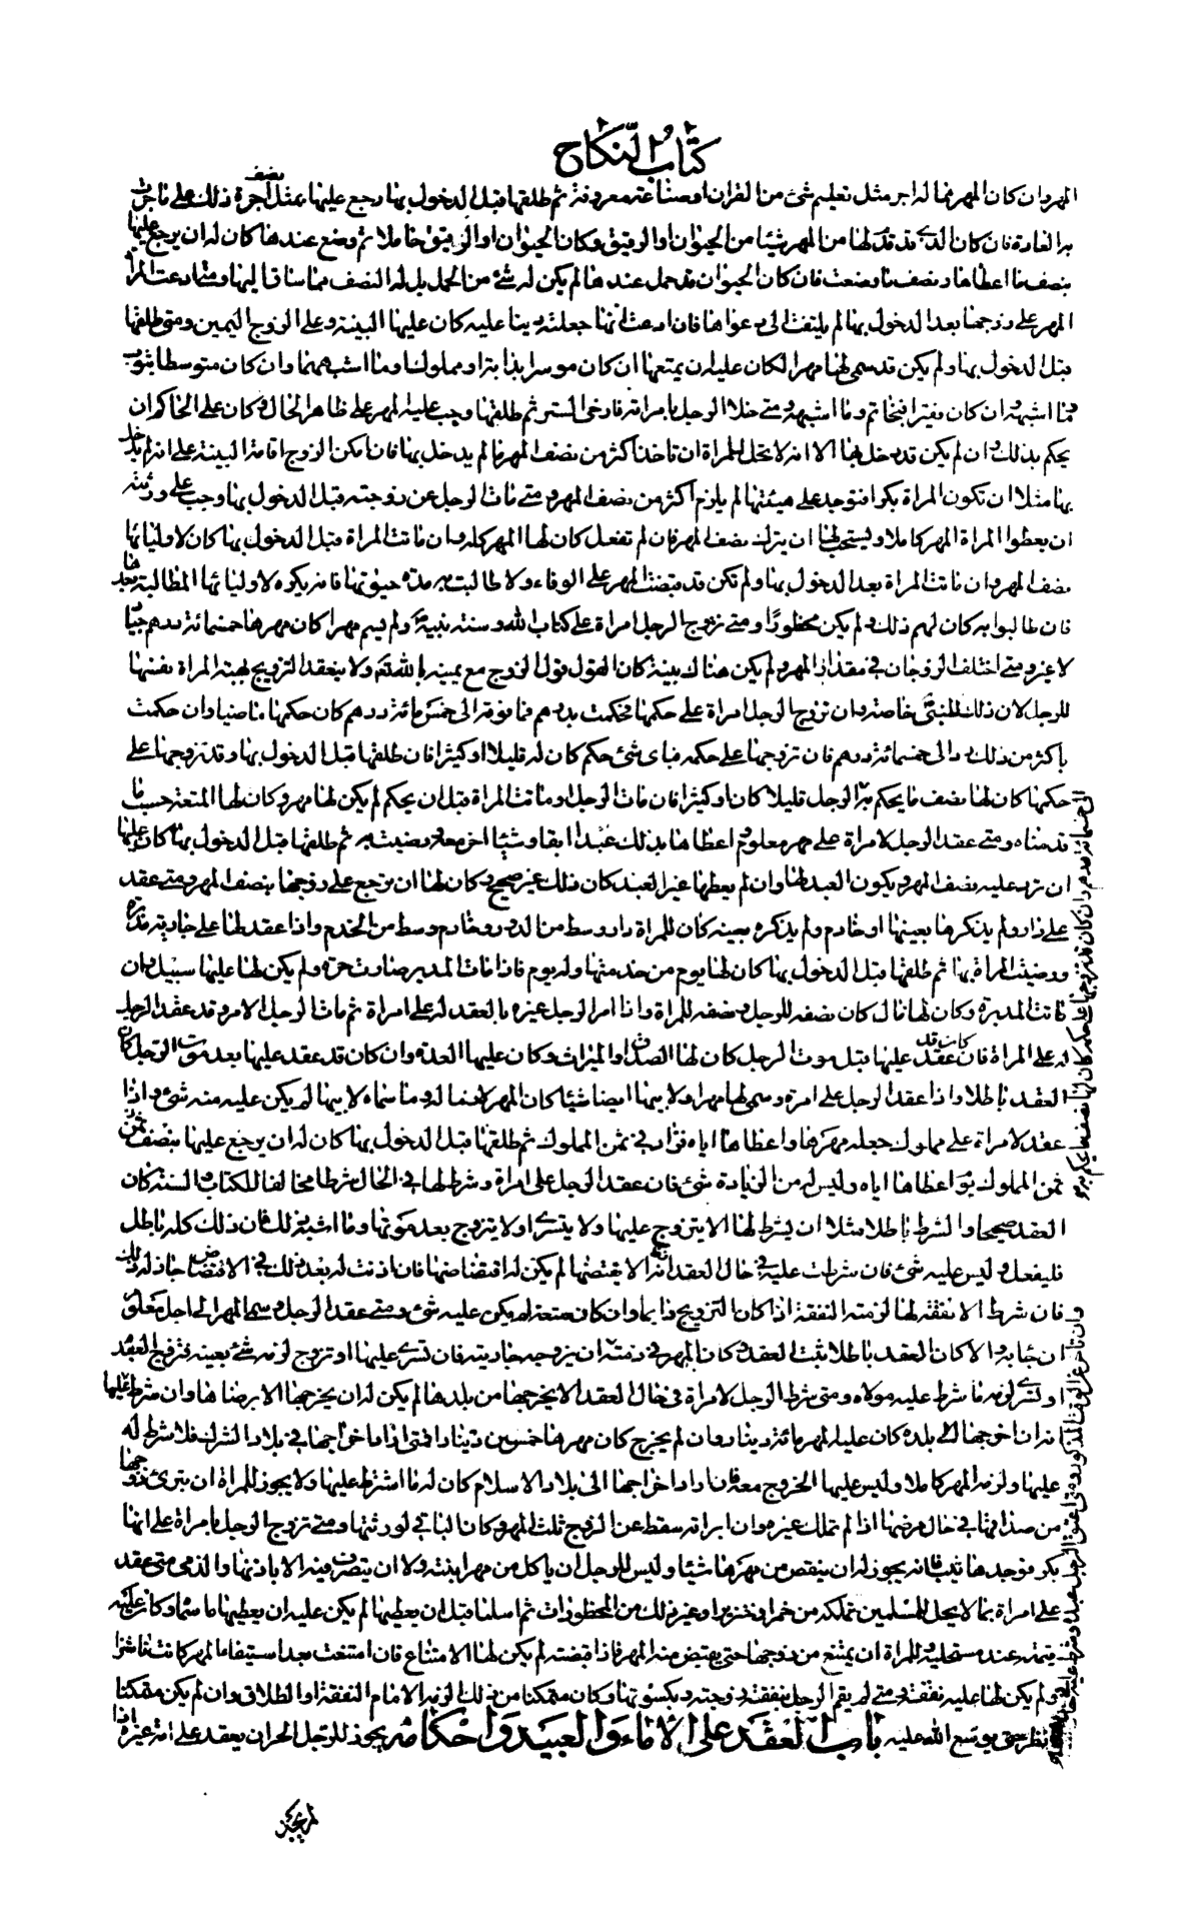 كتاب النكاح
المهر وان كان المهر مما له اجر مثل تعليم شئ من القران او صناعة معروفة ثم طلقها قبل الدخول بها رجع عليها بمثل نصف اجرة ذلك على ما جرت
به العادة فان كان الذي قد قدم لها من المهر شيئا من الحيوان او الرقيق وكان الحيوان او الرقيق حاملا ثم وضع عندها كان له ان يرجع عليها
بنصف ما اعطاها ونصف ما وضعت فان كان الحيوان قد حمل عندها لم يكن له شئ من الحمل بل له النصف مما ساق اليها ومتى ادعت المراة
المهر على زوجها بعد الدخول بها لم يلتفت الى دعواها فان ادعت انها جعلته دينا عليه كان عليها البينة وعلى الزوج اليمين ومتى طلقها
قبل الدخول بها ولم يكن قد سمى لها مهرا كان عليه ان يمتعها ان كان موسرا بدابة او مملوك او ما اشبههما وان كان متوسطا بثوب
وما اشبهه وان كان فقيرا بخاتم وما اشبهه ومتى خلا الرجل بامراته فارخى الستر ثم طلقها وجب عليه المهر على ظاهر الحال وكان على الحاكم ان
يحكم بذلك وان لم يكن قد دخل بها الا انه لا يحل للمراة ان تاخذ اكثر من نصف المهر ما لم يدخل بها فان امكن الزوج اقامة البينة على انه لم يدخل
بها مثلا ان تكون المراة بكرا فتوجد على هيئتها لم يلزم اكثر من نصف المهر ومتى مات الرجل عن زوجته قبل الدخول بها وجب على ورثته
ان يعطوا المراة المهر كاملا ويستحب لها ان يترك نصف المهر فان لم تفعل كان لها المهر كله وان ماتت المراة قبل الدخول بها كان لاوليائها
نصف المهر وان ماتت المراة بعد الدخول بها ولم تكن قد قبضت المهر على الوفاء ولا طالبت به مدة حيوتها فانه يكره لاوليائها المطالبة بعدها
فان طالبوا به كان لهم ذلك ولم يكن محظورا ومتى تزوج الرجل امراة على كتاب الله وسنة نبيه ولم يسم مهرا كان مهرها خمسمائة درهم جيادا
لا غير ومتى اختلف الزوجان في مقدار المهر ولم يكن هناك بينة كان القول قول الزوج مع يمينه بالله تعالى ولا ينعقد التزويج بهبة المراة نفسها
للرجل لان ذلك للنبي خاصة وان تزوج الرجل امراة على حكمها فحكمت بدرهم فما فوقه الى خمس مائة درهم كان حكمها ماضيا وان حكمت
باكثر من ذلك رد الى خمسمائة درهم فان تزوجها على حكمه فباى شئ حكم كان له قليلا او كثيرا فان طلقها قبل الدخول بها وقد تزوجها على
حكمها كان لها نصف ما يحكم به الرجل قليلا كان او كثيرا فان مات الرجل او ماتت المراة قبل ان يحكم لم يكن لها مهر وكان لها المتعة حسب ما
قدمناه ومتى عقد الرجل لامراة على مهر معلوم اعطاها بذلك عبدا ابقا وشيئا اخر معه ورضيت به ثم طلقها قبل الدخول بها كان عليها
ان ترد عليه نصف المهر ويكون العبد لها وان لم يعطها غير العبد كان ذلك غير صحيح وكان لها ان ترجع على زوجها بنصف المهر ومتى عقد
على دار ولم يذكرها بعينها او خادم ولم يذكره بعينه كان للمراة دار وسط من الدور وخادم وسط من الخدم واذا عقد لها على جارية مدبرة
ورضيت المراة بها ثم طلقها قبل الدخول بها كان لها يوم من خدمتها وله يوم فاذا مات المدبر صارت حرة ولم يكن لها عليها سبيل وان
ماتت المدبرة وكان لها مال كان نصفه للرجل ونصفه للمراة واذا امر الرجل غيره بالعقد له على امراة ثم مات الرجل الامر وقد عقد الرجل
له على المراة فان كان قد عقد عليها قبل موت الرجل كان لها الصداق والميراث وكان عليها العدة وان كان قد عقد عليها بعد موت الرجل كان
العقد باطلا واذا عقد الرجل على امرة وسمى لها مهرا ولابيها ايضا شيئا كان المهر لازما له وما سماه لابيها لم يكن عليه منه شئ واذا
عقد لامراة على مملوك جعله مهرها واعطاها اياه فزاد في ثمن المملوك ثم طلقها قبل الدخول بها كان له ان يرجع عليها بنصف ثمن
ثمن المملوك يوم اعطاها اياه وليس له من الزيادة شئ فان عقد الرجل على امراة وشرط لها في الحال شرطا مخالفا للكتاب والسنة كان
العقد صحيحا والشرط باطلا مثلا ان يشرط لها الا يتزوج عليها ولا يتسرى او لا يتزوج بعد موتها وما اشبه ذلك فان ذلك كله باطل
فليفعل وليس عليه شئ فان شرطت عليه في حال العقد انه لا يفتضها لم يكن له افتضاضها فان اذنت له بعد ذلك في الافتضاض جاز له ذلك
فان شرط الا نفقة لها لزمته النفقة اذا كان التزويج دايما وان كان متعة لم يكن عليه شئ ومتى عقد الرجل وسمى المهر الى اجل معلوم
ان جاء به والا كان العقد باطلا ثبت العقد وكان المهر في ذمته ان يزوجه جاريته فان تسرى عليها او تزوج لزمه شئ بعينه فتزوج العبد
او تسرى لزمه ما شرط عليه مولاه ومتى شرط الرجل لامراة في حال العقد الا يخرجها من بلدها لم يكن له ان يخرجها الا برضاها وان شرط عليها
انه ان اخرجها الى بلده كان عليه المهر مائة دينار وان لم يخرج كان مهرها خمسين دينارا فمتى اراد اخراجها الى بلاد الشرك فلا شرط له
عليها ولزمه المهر كاملا وليس عليها الخروج معه فان اراد اخراجها الى بلاد الاسلام كان له ما اشترط عليها ولا يجوز للمراة ان تبرئ زوجها
من صداقها في حال مرضها اذا لم تملك غيره وان ابراته سقط عن الزوج ثلث المهر وكان الباقي لورثتها ومتى تزوج الرجل بامراة على انها
بكر فوجدها ثيبا فانه يجوز له ان ينقص من مهرها شيئا وليس للرجل ان ياكل من مهر ابنته ولا ان يتصرف فيه الا باذنها والذمي متى عقد
على امراة بما لا يحل للمسلمين تملكه من خمر او خنزير او غير ذلك من المحظورات ثم اسلما قبل ان يعطيها لم يكن عليه ان يعطيها ما سماه وكان عليه
قيمته عند مستحليه وللمراة ان يمتنع من زوجها حتى يقبض منه المهر فاذا قبضته لم يكن لها الامتناع فان امتنعت بعد استيفاء المهر كانت ناشزا
ولم يكن لها عليه نفقة ومتى لم يقم الرجل بنفقة زوجته وبكسوتها وكان متمكنا من ذلك الزمه الامام النفقة او الطلاق وان لم يكن متمكنا
انظر حتى يوسع الله عليه باب العقد على الاماء والعبيد واحكامه يجوز للرجل الحر ان يعقد على امة غيره اذا
الى خمسمائة درهم وان كان قد تزوجها على حكمه كان لها نصف ما يحكم به هو
وان تاخر عن الوقت المذكور ومتى اعتق الرجل عبده وشرط عليه في حال العتق
لم يجد